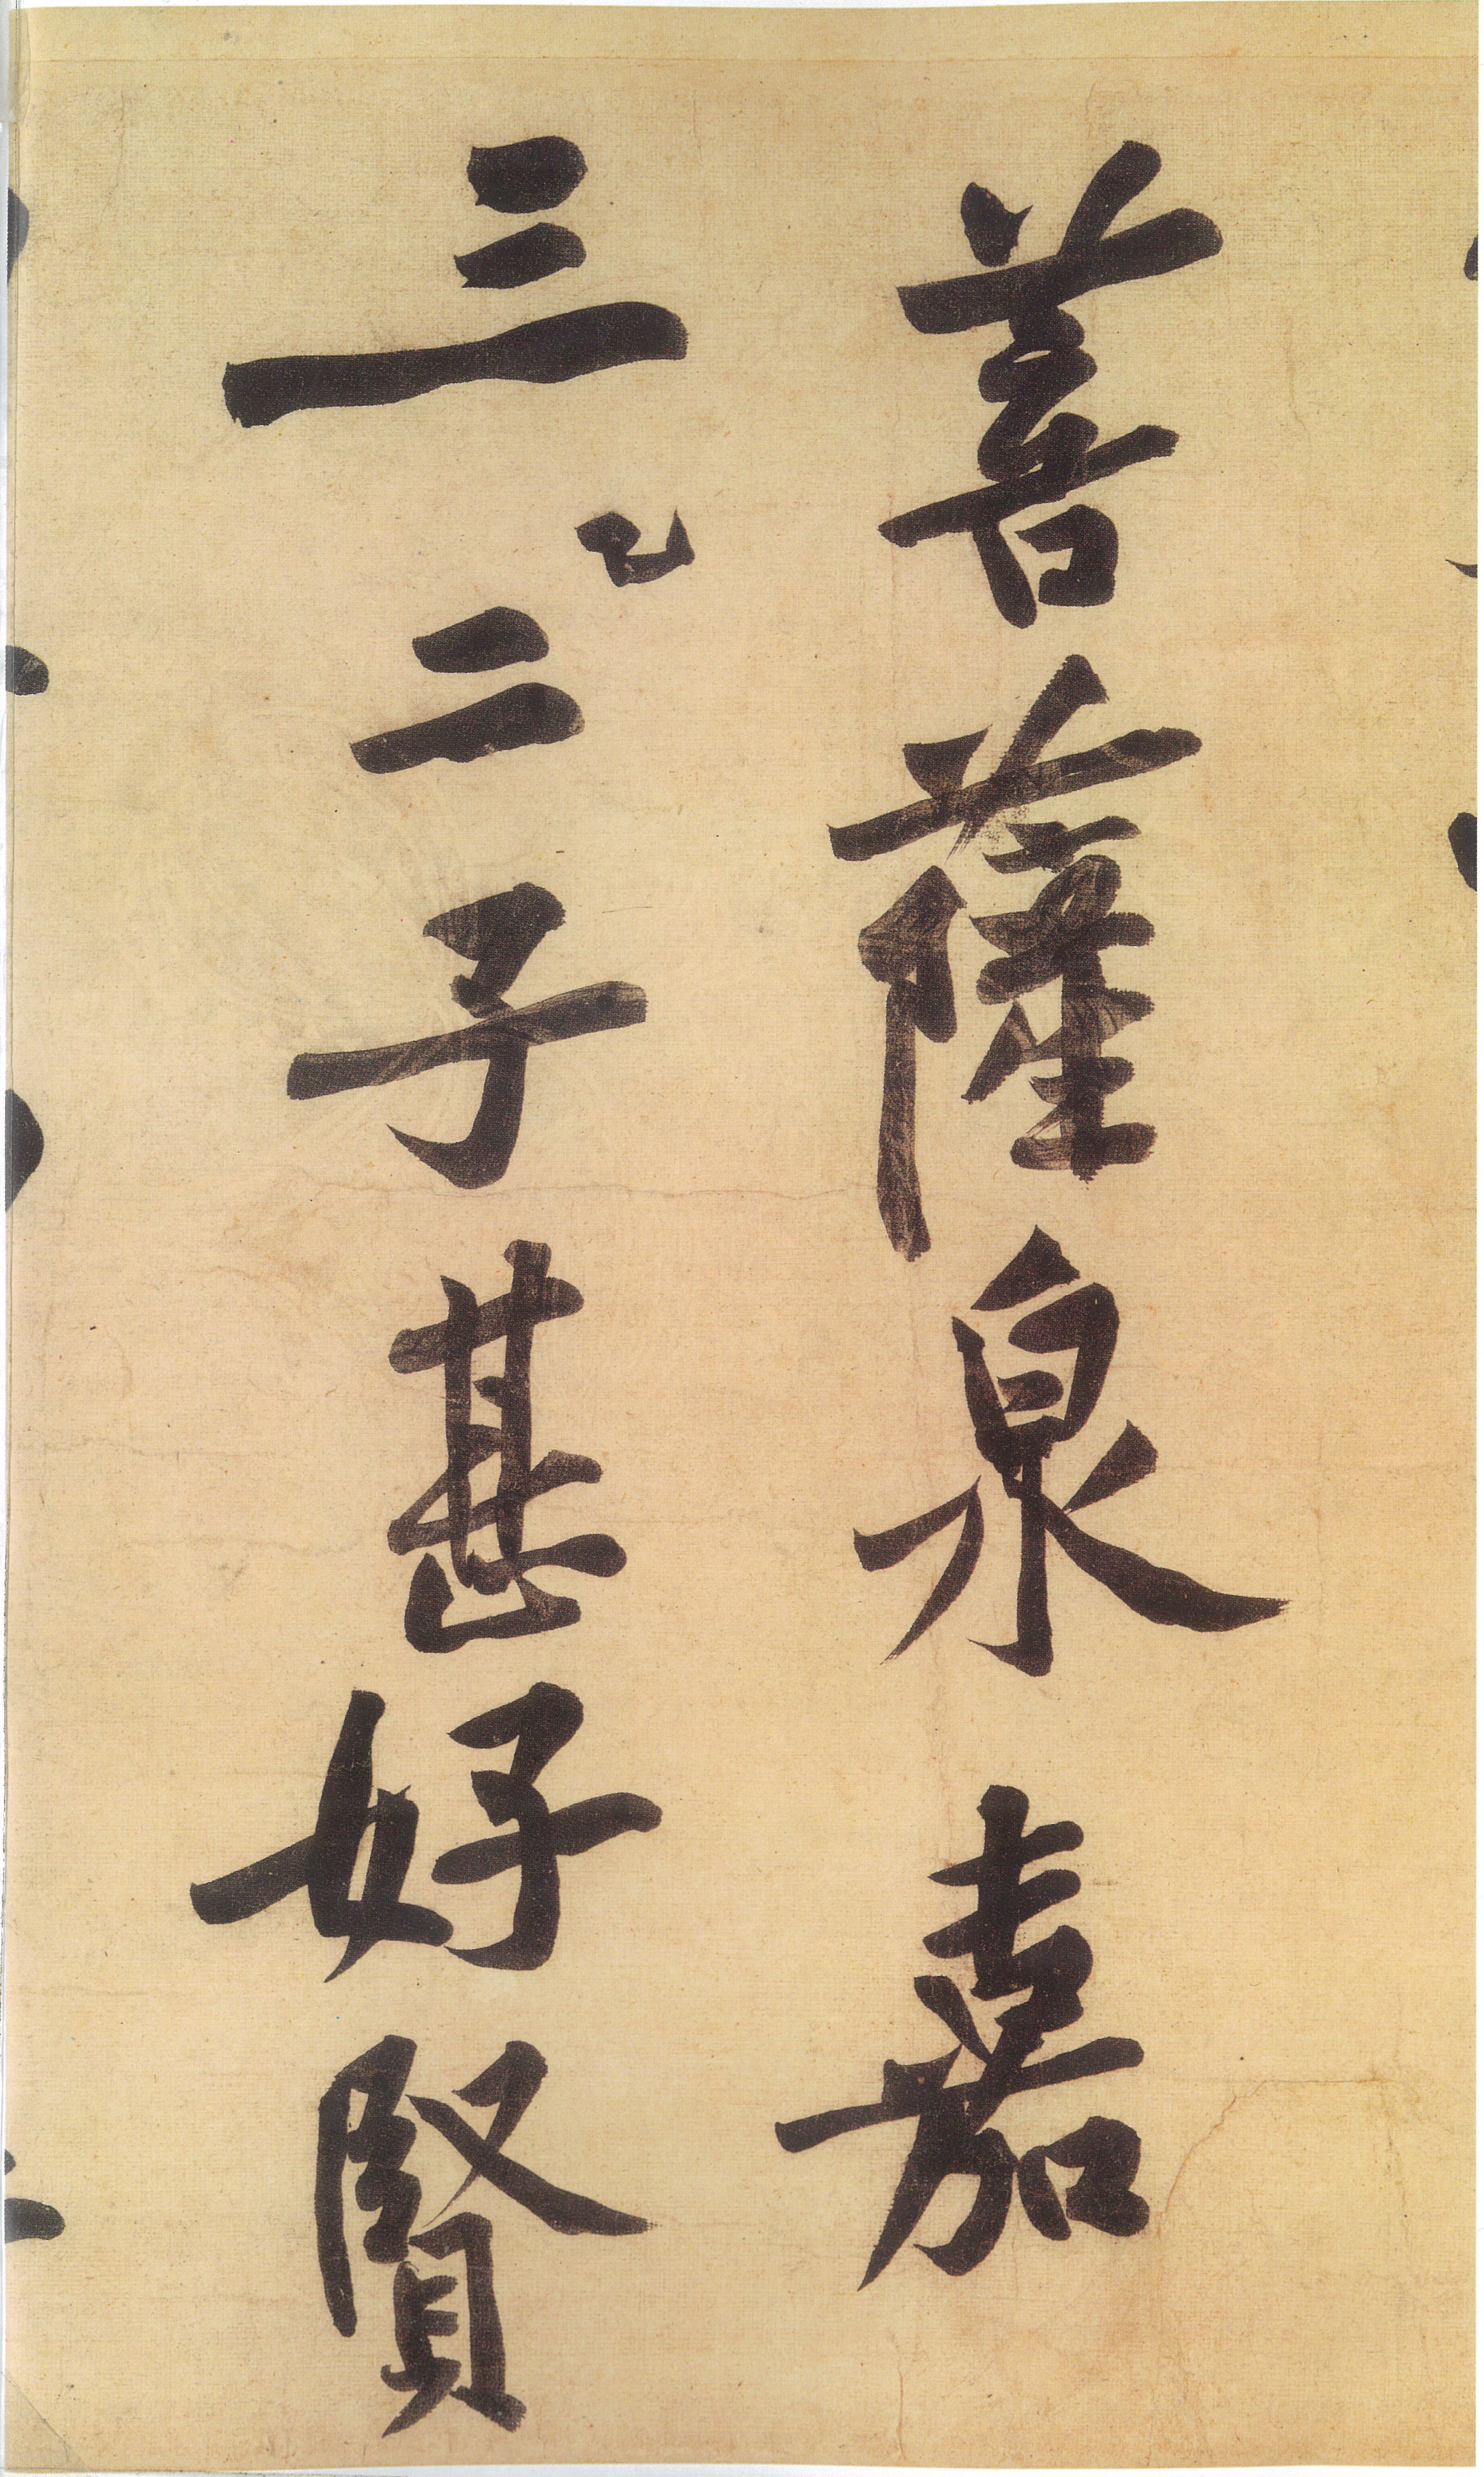 菩薩泉嘉
三〻二子甚好賢